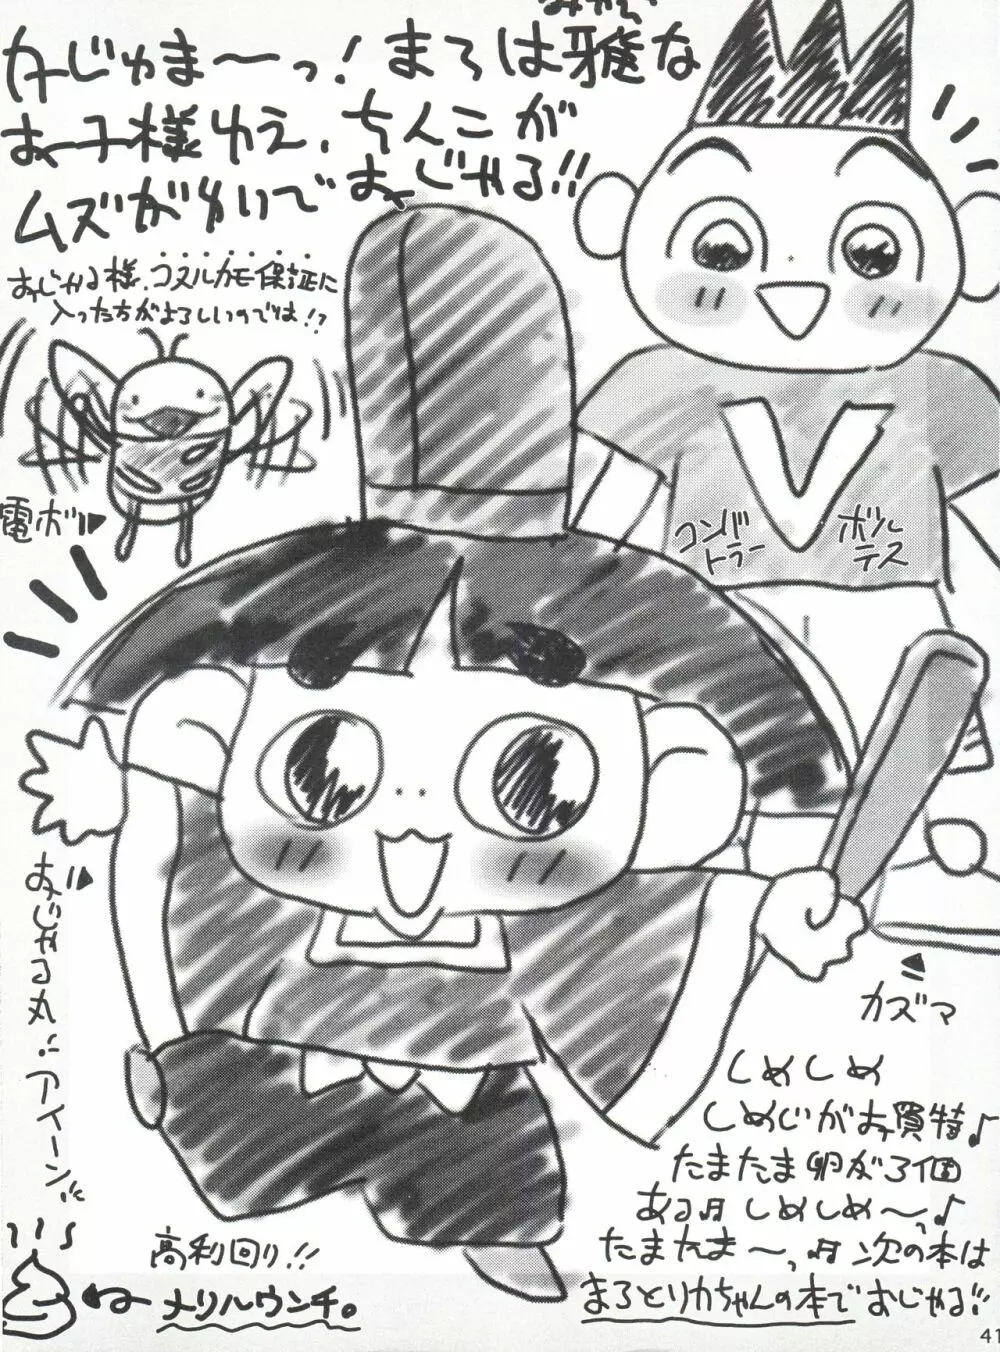 かじゅま〜っ!まろは雅な
お子様ゆえ、ちんこが
ムズがゆいでおじゃる!!
おじゃる様、コヌルカモ保証に
入った方がよろしいのでは!?
電ボ
コンバトラー
ボルテス
おじゃる丸
アイーン
カズマ
しめしめ
しめじがお買特♪
たまたま卵が3個
ある月しめしめ〜っ♪
たまたま〜っ♪次の本は
まろとリカちゃんの本でおじゃる!!
高利回り!!
メリルウンチ。
41